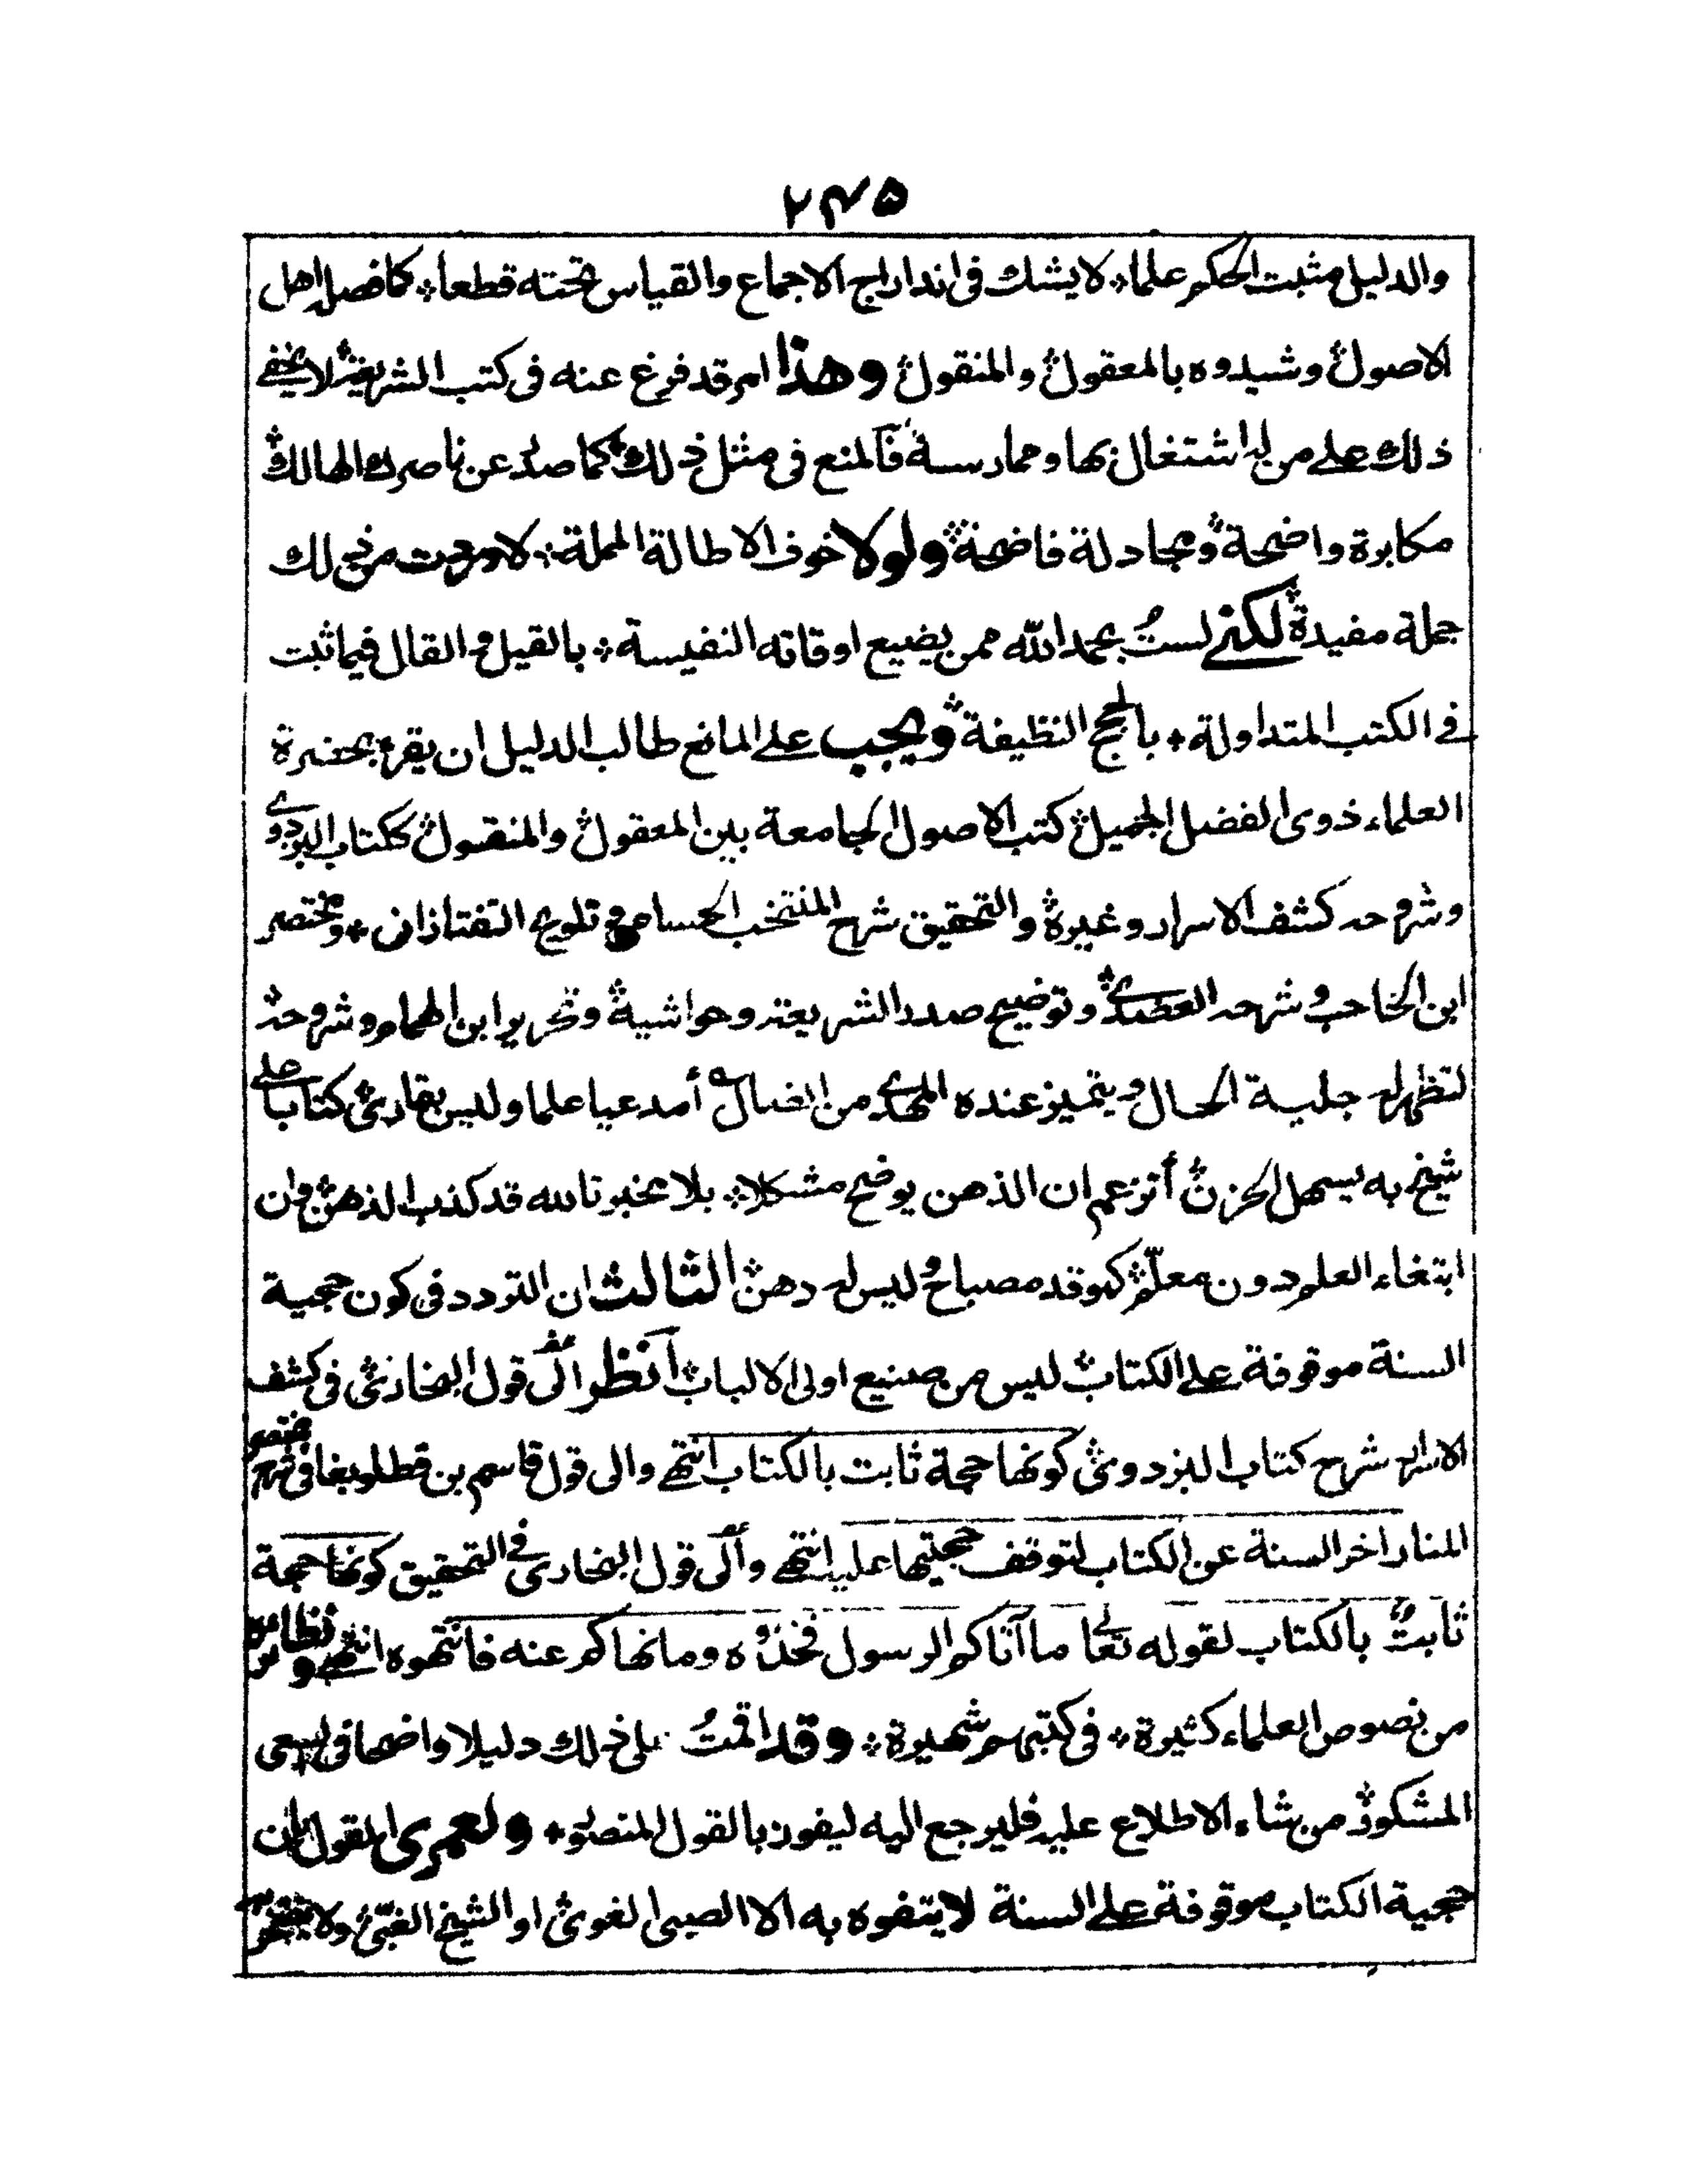 ۲۴۵
والدليل مثبت الحكم علما لا يشك فى اندراج الاجماع والقياس تحته قطعا كما فصله اهل
الاصول وشيدوه بالمعقول والمنقول وهذا امر قد فرغ عنه فى كتب الشريعة لا يخفى
ذلك على من له اشتغال بها وممارسة فالمنع فى مثل ذلك كما صدر عن ناصرك الهالك
مكابرة واضحة ومجادلة فاضحة ولولا خوف الاطالة المملة لاوردت من ذلك
جملة مفيدة لكنى لستُ بحمد الله ممن يضيع اوقاته النفيسة بالقيل والقال فيما ثبت
فى الكتب المتداولة بالحجج النظيفة ويجب على المانع طالب الدليل ان يقرء بحضرة
العلماء ذوى الفضل الجميل كتب الاصول الجامعة بين المعقول والمنقول ككتاب البزدوى
وشروحه كشف الاسرار وغيره والتحقيق شرح المنتخب الحسامى وتلويح التفتازانى ومختصر
ابن الحاجب وشرحه العضدى وتوضيح صدر الشريعة وحواشيه وتحرير ابن الهمام وشروحه
لتظهر له جلية الحال ويتميز عنده المهدى من الضال أمدعيا علما وليس بقارئ كتابا على
شيخ به يسهل الحزن أتزعم ان الذهن يوضح مشكلا بلا مخبر تالله قد كذب الذهن وان
ابتغاء العلم دون معلّم كموقد مصباح وليس له دهن الثالث ان التردد فى كون حجية
السنة موقوفة على الكتاب ليس من صنيع اولى الالباب انظر الى قول البخارى فى كشف
الاسرار شرح كتاب البزدوى كونها حجة ثابت بالكتاب انتهى والى قول قاسم بن قطلوبغا فى شرح مختصر
المنار اخر السنة عن الكتاب لتوقف حجيتها عليه انتهى والى قول البخارى فى التحقيق كونها حجة
ثابتٌ بالكتاب لقوله تعالى ما آتاكم الرسول فخذوه وما نهاكم عنه فانتهوه انتهى ونظائره
من نصوص العلماء كثيرة فى كتبهم شهيرة وقد اقمتُ على ذلك دليلا واضحا فى السعى
المشكور من شاء الاطلاع عليه فليرجع اليه ليفوز بالقول المنصور ولعمرى القول بان
حجية الكتاب موقوفة على السنة لا يتفوه به الا الصبى الغوى او الشيخ الغبىّ ولا